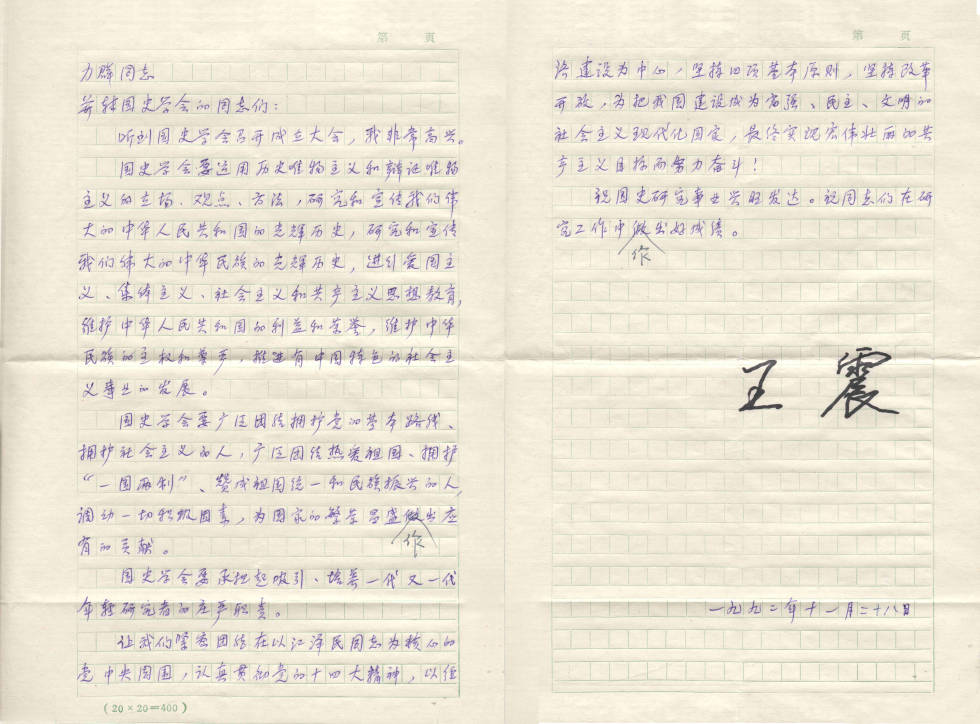 第 頁
力群同志
并转国史学会的同志们：
听到国史学会召开成立大会，我非常高兴。
国史学会要运用历史唯物主义和辩证唯物
主义的立场、观点、方法，研究和宣传我们伟
大的中华人民共和国的光辉历史，研究和宣传
我们伟大的中华民族的光辉历史，进行爱国主
义、集体主义、社会主义和共产主义思想教育，
维护中华人民共和国的利益和荣誉，维护中华
民族的主权和尊严，推进有中国特色的社会主
义事业的发展。
国史学会要广泛团结拥护党的基本路线、
拥护社会主义的人，广泛团结热爱祖国、拥护
“一国两制”、赞成祖国统一和民族振兴的人，
调动一切积极因素，为国家的繁荣昌盛做出应
作
有的贡献。
国史学会要承担起吸引、培养一代又一代
年轻研究者的庄严职责。
让我们紧密团结在以江泽民同志为核心的
党中央周围，认真贯彻党的十四大精神，以经
(20×20=400)
第 頁
济建设为中心，坚持四项基本原则，坚持改革
开放，为把我国建设成为富强、民主、文明的
社会主义现代化国家，最终实现宏伟壮丽的共
产主义目标而努力奋斗！
祝国史研究事业兴旺发达。祝同志们在研
究工作中做出好成绩。
作
王震
一九九二年十一月二十八日